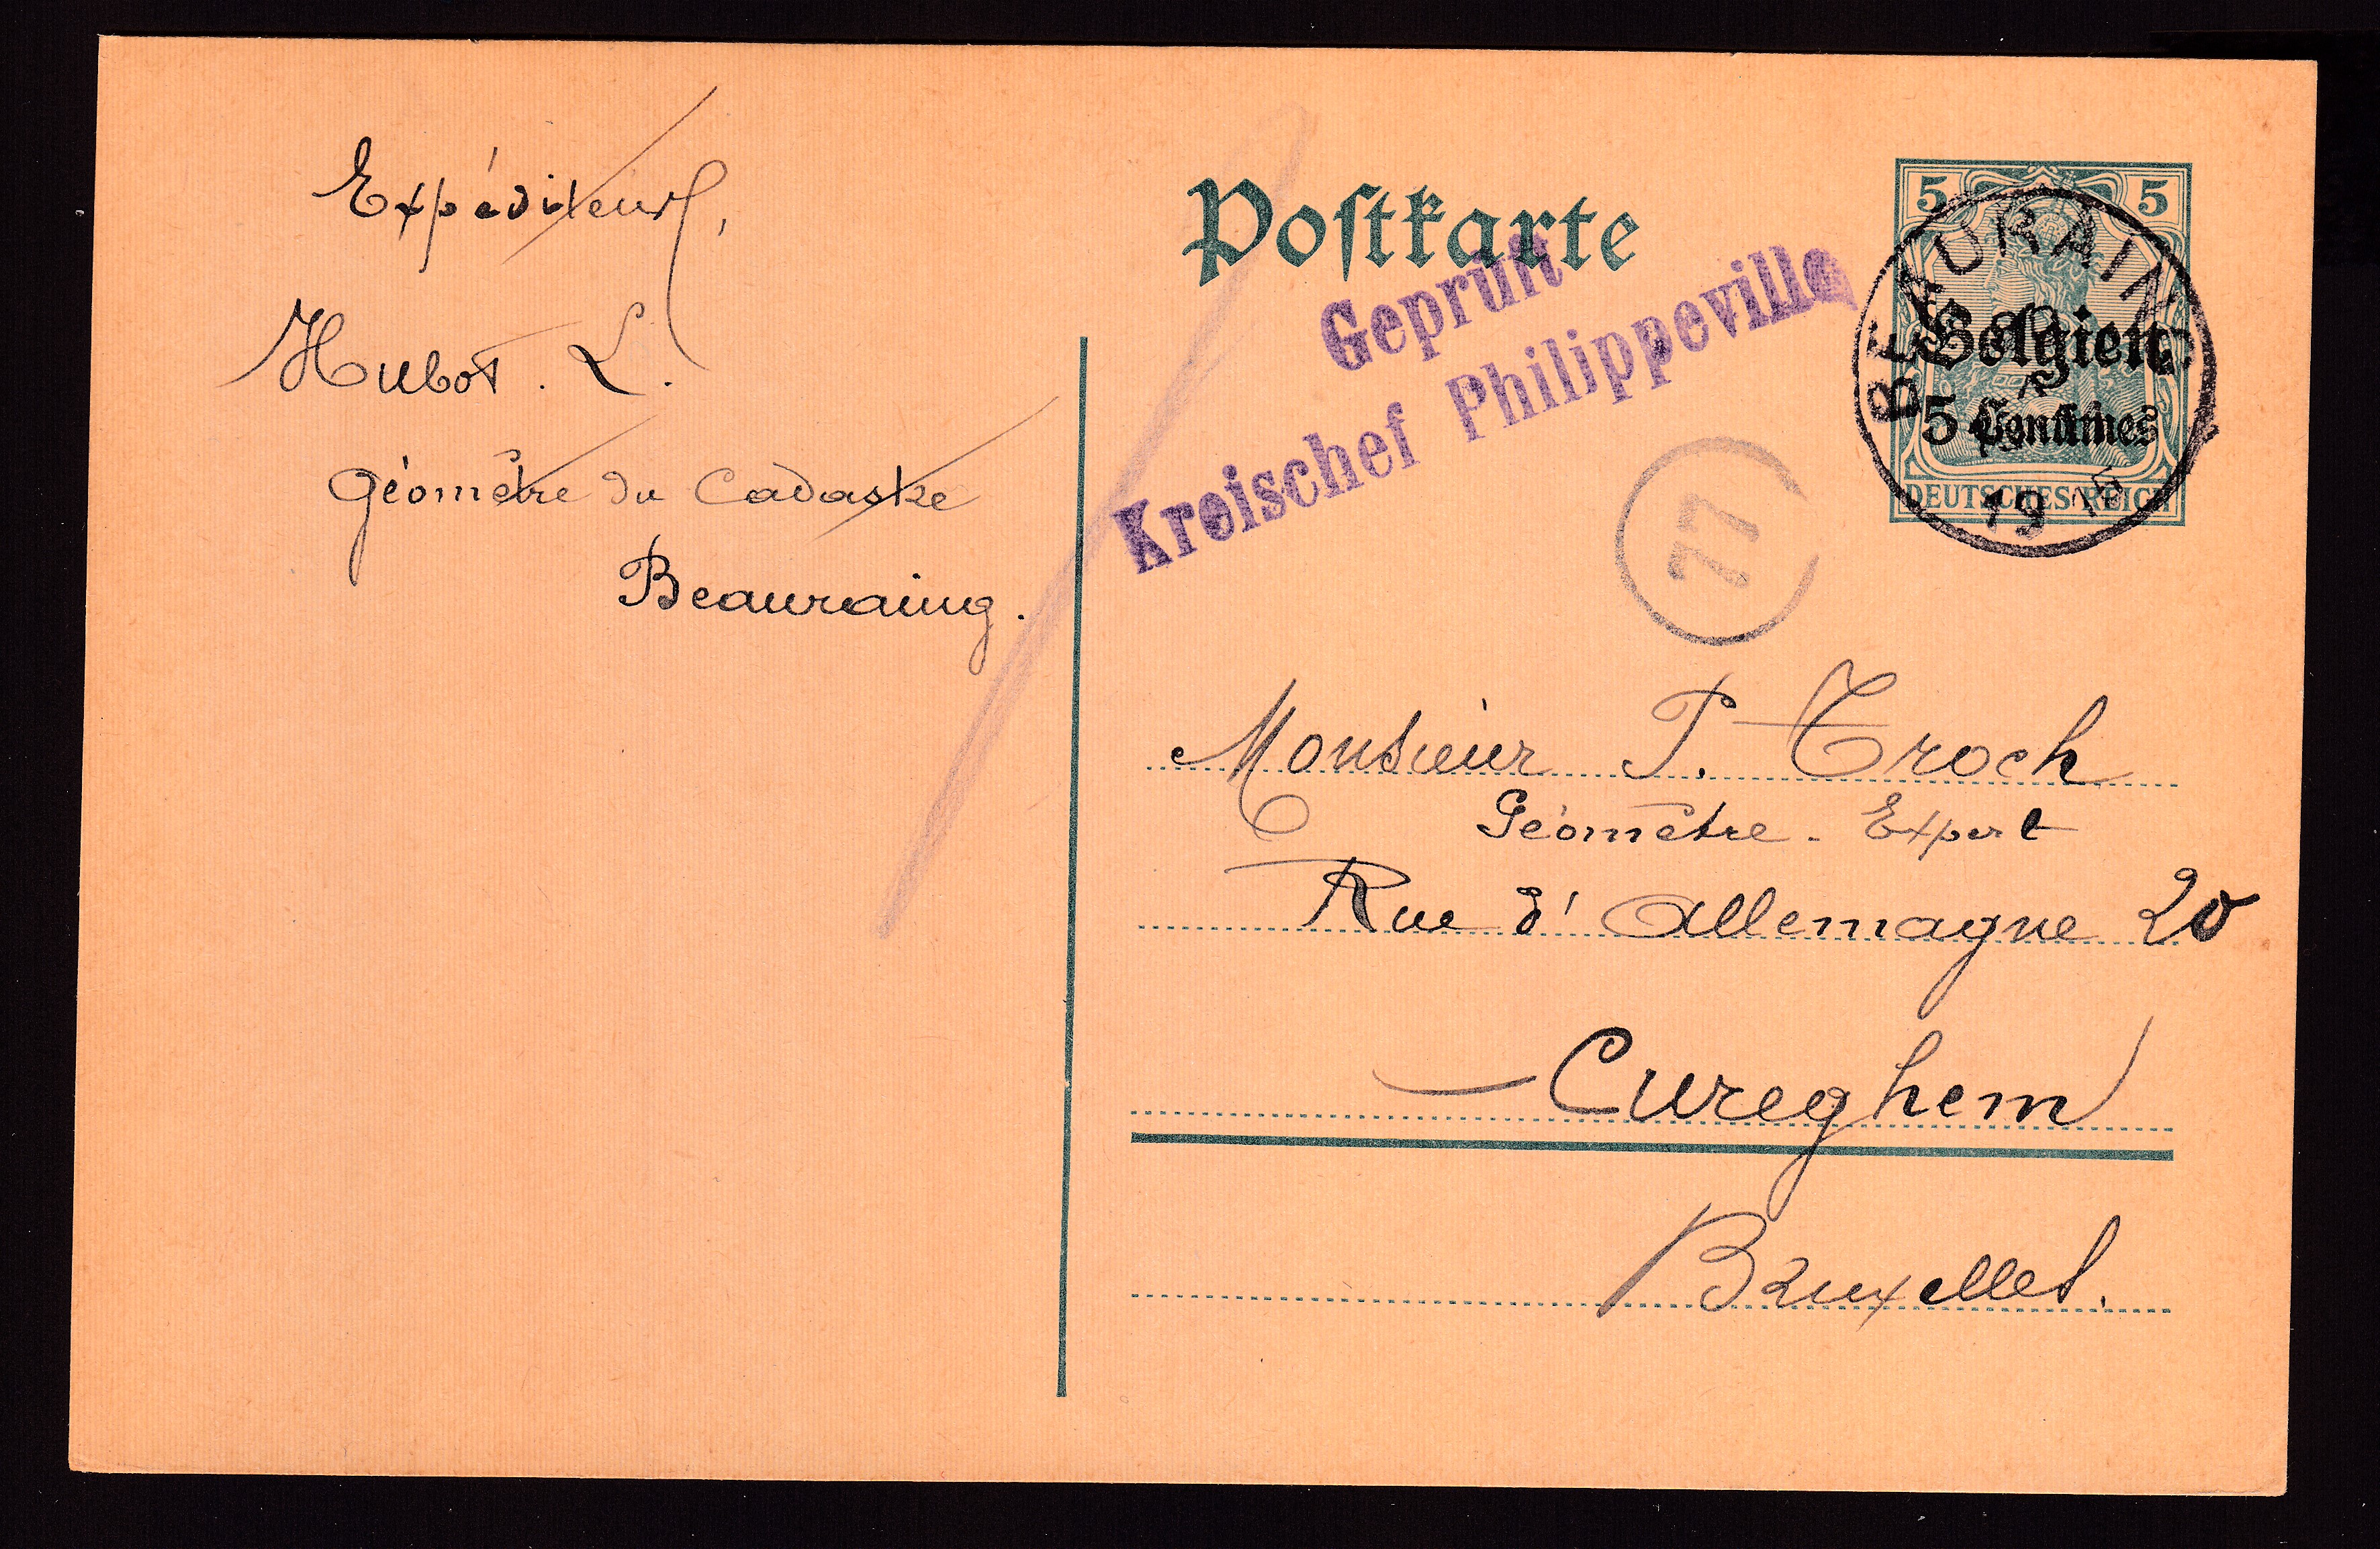 Expéditeur,
Hubot. L.
Géomètre du Cadastre
Beauraing.
Postkarte
Geprüft
Kreischef Philippeville
77
5 5
BEAURAING
Belgien
5 Centimes
DEUTSCHES REICH
19 15
Monsieur P. Troch
Géomètre - Expert
Rue d'Allemagne 20
Cureghem
Bruxelles.